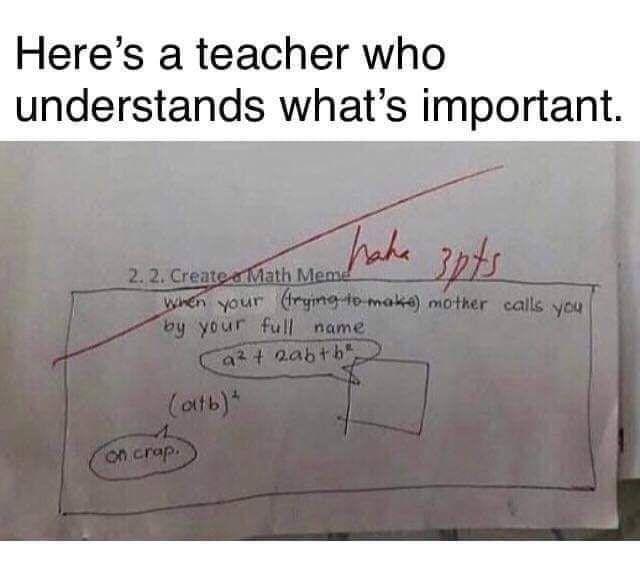 Here’s a teacher who
understands what’s important.
haha 3pts
2. 2. Create a Math Meme
when your (trying to make) mother calls you
by your full name
a² + 2ab + b²
(a+b)²
oh crap.